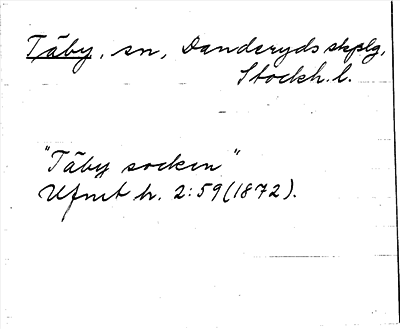 Täby, sn, Danderyds skplg,
Stockh. l.
"Täby socken"
Ufmt h. 2:59 (1872).